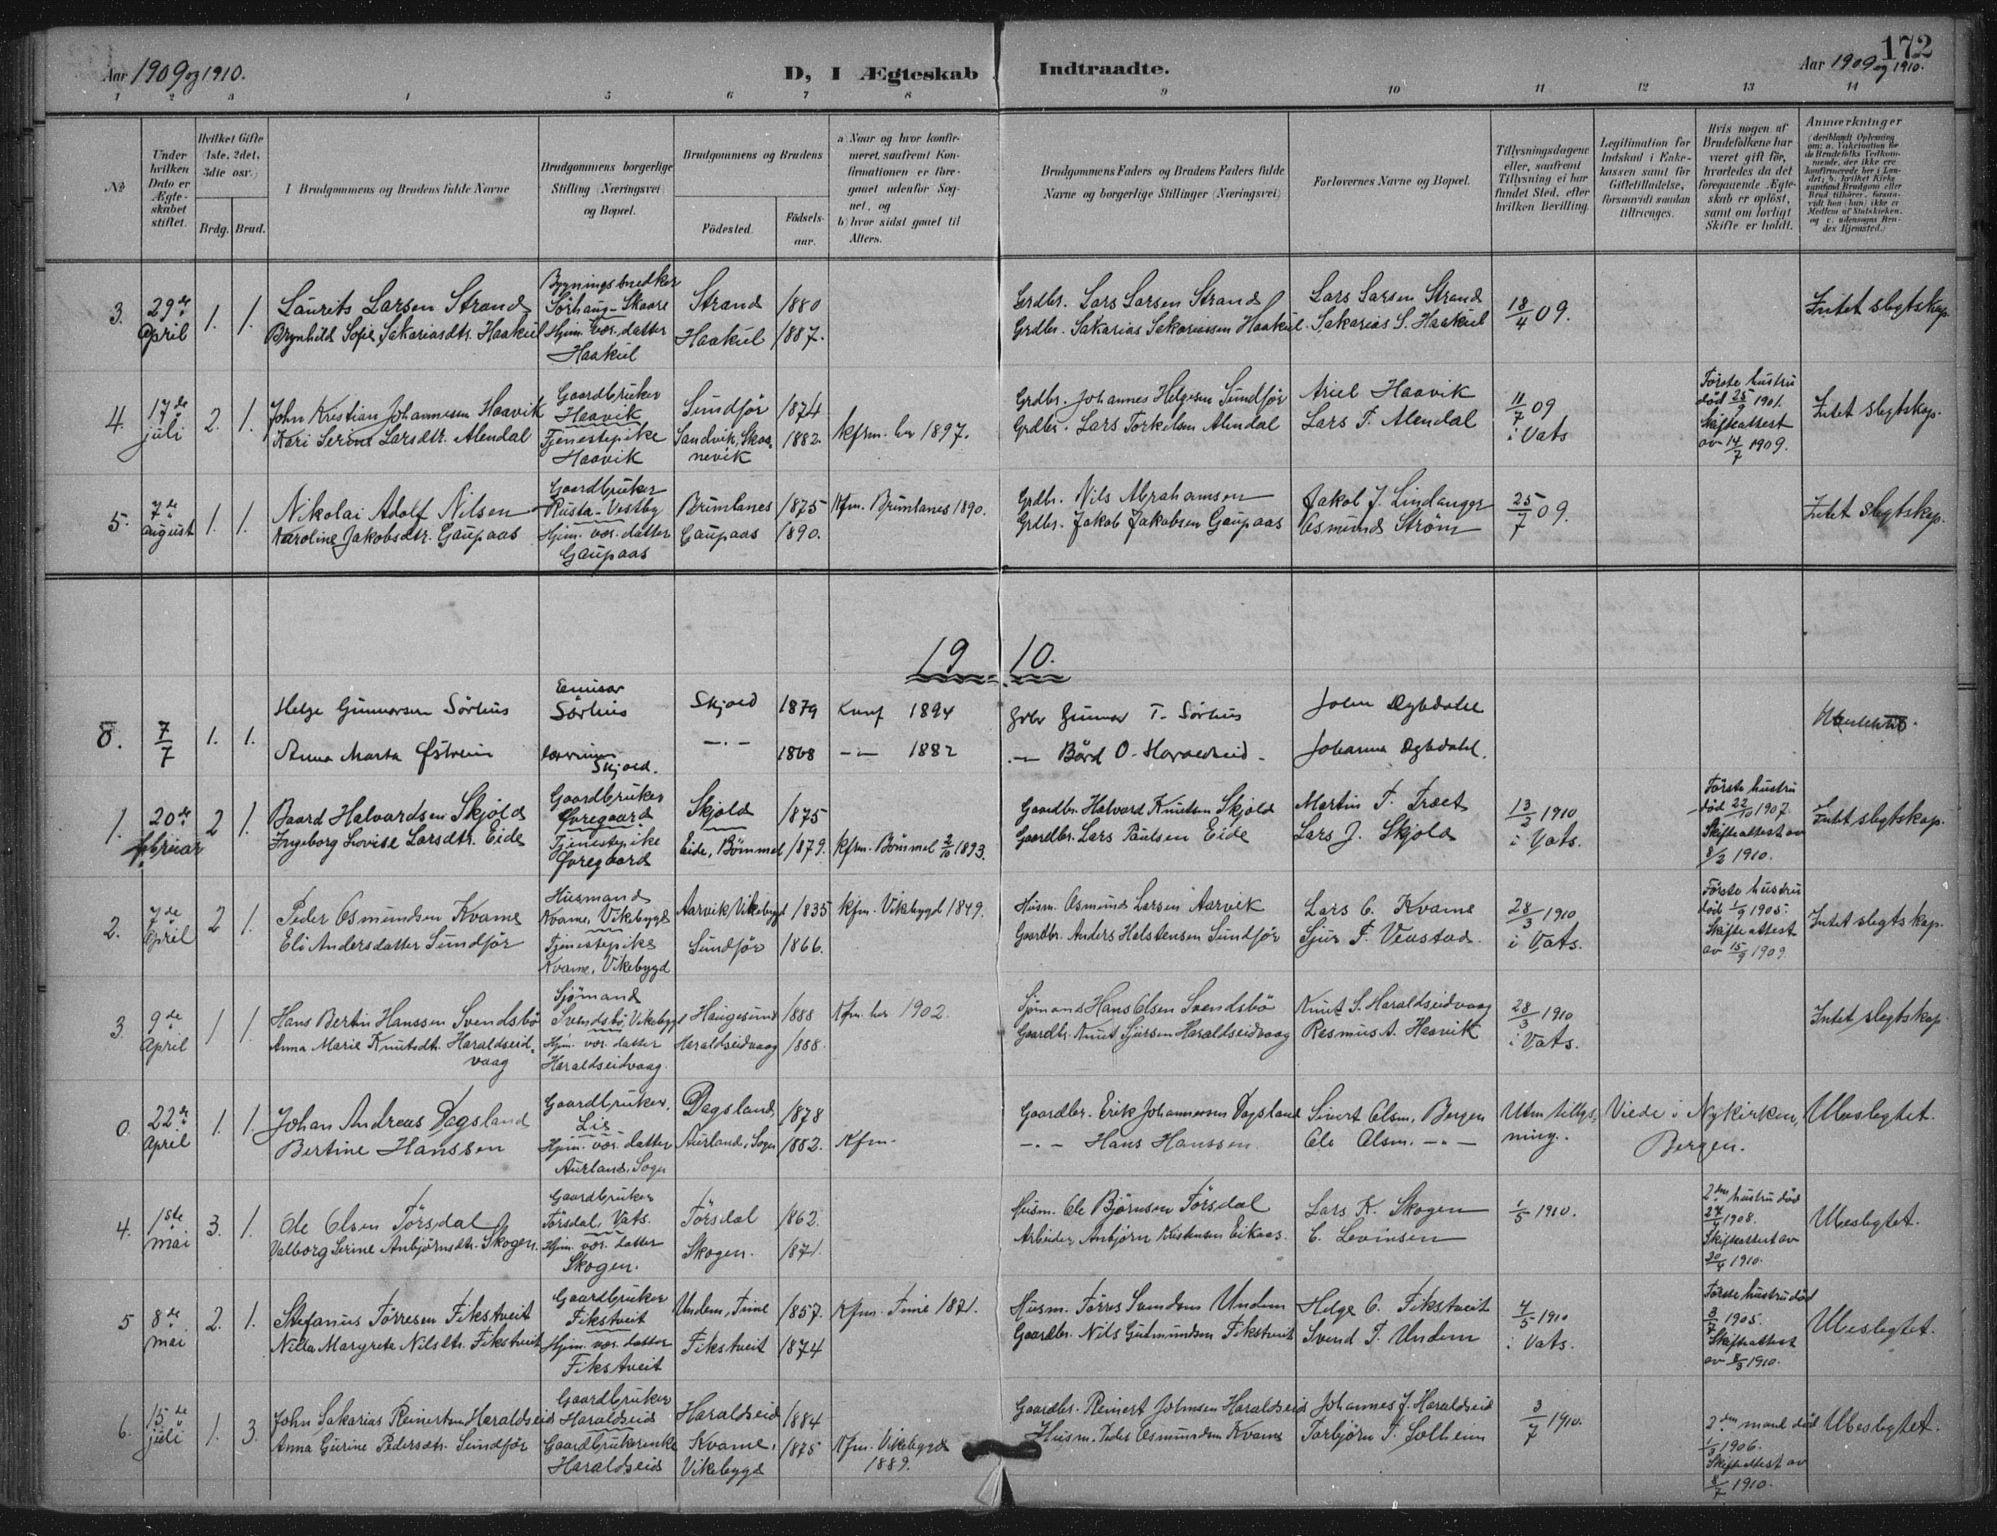 172
Aar 1909 og 1910.
D, I Ægteskab Indtraadte.
Aar 1909 og 1910.
1 2 3 4 5 6 7 8 9 10 11 12 13 14
No
Under hvilken Dato er Ægteskabet stiftet.
Hvilket Gifte (1ste, 2det, 3dte osv.)
Brdg. Brud.
I Brudgommens og Brudens fulde Navne
Brudgommens borgerlige Stilling (Næringsvei) og Bopæl.
Brudgommens og Brudens
Födested.
Födselsaar.
a) Naar og hvor konfirmeret, saafremt Konfirmationen er foregaaet udenfor Sognet, og
b) hvor sidst gaaet til Alters.
Brudgommens Faders og Brudens Faders fulde Navne og borgerlige Stillinger (Næringsvei)
Forlovernes Navne og Bopæl.
Tillysningsdagene eller, saafremt Tillysning ei har fundet Sted, efter hvilken Bevilling.
Legitimation for Indskud i Enkekassen samt for Giftetilladelse, forsaavidt saadan tiltrænges.
Hvis nogen af Brudefolkene har været gift för, hvorledes da det foregaaende Ægteskab er oplöst, samt om lovligt Skifte er holdt.
Anmærkninger
3. 29de April 1. 1.
Laurits Larsen Strand
Brynhild Sofie Sakariasdtr. Haakul
Bygningssnedker
Sörhaug - Skaare
Hjem. vær. datter
Haakul
Strand 1880
Haakul 1887.
Grdbr. Lars Larsen Strand
Grdbr. Sakarias Sakariassen Haakul
Lars Larsen Strand
Sakarias S. Haakul
18/4 09.
Intet slegtskap.
4. 17de juli 2. 1.
John Kristian Johannesen Haavik
Kari Serine Larsdtr. Alendal
Gaardbruker
Haavik
Tjenestepike
Haavik
Sundför 1874
Sandvik, Skaanevik 1882.
kfrm. her 1897.
Grdbr. Johannes Helgesen Sundför
Grdbr. Lars Torkelsen Alendal
Ariel Haavik
Lars T. Alendal
11/7 09
i Vats
Förste hustru
död 25/9 1901.
Skifteattest
av 14/7 1909.
Intet slegtskap.
5. 7de august 1. 1.
Nikolai Adolf Nilsen
Karoline Jakobsdtr. Gaupaas
Gaardbruker
Rusta - Vestby
Hjem. vær. datter
Gaupaas
Brunlanes 1875
Gaupaas 1890.
Kfm. Brunlanes 1890.
Grdbr. Nils Abrahamsen
Grdbr. Jakob Jakobsen Gaupaas
Jakob J. Lindanger
Osmund Ström
25/7 09.
Intet slegtskap.
1910.
8. 7/7 1. 1.
Helge Gunnarsen Sörhus
Anna Marta Østrem
Emisær
Sörhus
Skjold.
Skjold 1879
-"- 1868
Konf 1894
-"- 1882
Grbr Gunnar T. Sörhus
-"- Bård O. Haraldseid.
John Ögbdahl
Johanna Ögbdahl.
1. 20de februar 2 1.
Baard Halvardsen Skjold
Ingeborg Lovise Larsdtr. Eide
Gaardbruker
Øvregaard
Tjenestepike
Øvregaard
Skjold 1875
Eide, Bömmel 1879.
kfm. Bömmel 2/10 1893.
Gaardbr. Halvard Knutsen Skjold
Gaardbr. Lars Paulsen Eide
Martin T. Træet
Lars J. Skjold
13/2 1910
i Vats.
Förste hustru
död 22/10 1907.
Skifteattest av
8/2 1910.
Intet slegtskap.
2. 7de April 2 1.
Peder Osmundsen Kvame
Eli Andersdatter Sundför
Husmand
Kvame, Vikebygd
Tjenestepike
Kvame, Vikebygd
Aarvik, Vikebygd 1835
Sundför 1866.
kfm. Vikebygd 1849.
Husm. Osmund Larsen Aarvik
Gaardbr. Anders Helstensen Sundför
Lars C. Kvame
Sjur T. Venstad.
28/3 1910
i Vats.
Förste hustru
död 1/9 1905.
Skifteattest
av 15/9 1909.
Intet slegtskap.
3 9de April 1 1
Hans Bertin Hanssen Svendsbö
Anna Marie Knutsdtr. Haraldseidvaag
Sjömand
Svendsbö, Vikebygd
Hjem. vær. datter
Haraldseidvaag.
Haugesund 1888
Haraldseidvaag 1888.
Kfm. her 1902.
Sjömand Hans Olsen Svendsbö
Gaardbr. Knut Sjursen Haraldseidvaag
Knut S. Haraldseidvaag
Rasmus A. Haavik
28/3 1910
i Vats.
Intet slegtskap.
0. 22de April 1. 1.
Johan Andreas Dagsland
Bertine Hanssen
Gaardbruker,
Lie
Hjem. vær. datter
Aurland, Sogn
Dagsland, 1878
Aurland, Sogn 1882.
Kfm.
Gaardbr. Erik Johannesen Dagsland
-"- Hans Hanssen.
Sivert Olsen, Bergen
Ole Olsen. -"-
Uten tillysning.
Viede i Nykirken, Bergen.
Ubeslegtet.
4. 1ste mai 3. 1.
Ole Olsen Törsdal
Valborg Serine Anbjörnsdtr. Skogen.
Gaardbruker
Törsdal, Vats.
Hjem. vær. datter
Skogen.
Törsdal 1862.
Skogen. 1871.
Husm. Ole Björnsen Törsdal
Arbeider Anbjörn Kristensen Eikaas.
Lars K. Skogen
C. Levinsen
1/5 1910.
2den hustru död
27/4 1908.
Skifteattest av
20/4 1910.
Ubeslegtet.
5 8de mai 2. 1.
Stefanus Törresen Fikstveit
Nilla Margrete Nilsdtr. Fikstveit
Gaardbruker
Fikstveit
Hjem. vær. datter
Fikstveit
Undem, Time 1857.
Fikstveit 1874
Kfm. Time 1871.
Husm. Törres Svendsen Undem
Gaardbr. Nils Gudmundsen Fikstveit
Helge C. Fikstveit
Svend T. Undem
4/5 1910
i Vats.
Förste hustru död
3/7 1905.
Skifteattest
av 8/3 1910.
Ubeslegtet.
6. 15de juli 1. 3.
John Sakarias Reinertsen Haraldseid
Anna Gurine Pedersdtr. Sundför
Gaardbruker
Haraldseid
Gaardbrukerenke
Haraldseid
Haraldseid 1884
Kvame, Vikebygd 1875
Kfm. Vikebygd
1889.
Gaardbr. Reinert Johnsen Haraldseid
Husm. Peder Osmundsen Kvame
Johannes J. Haraldseid
Torbjörn T. Solheim
3/7 1910.
2den mand död
1/3 1906.
Skifteattest av
8/7 1910.
Ubeslegtet.